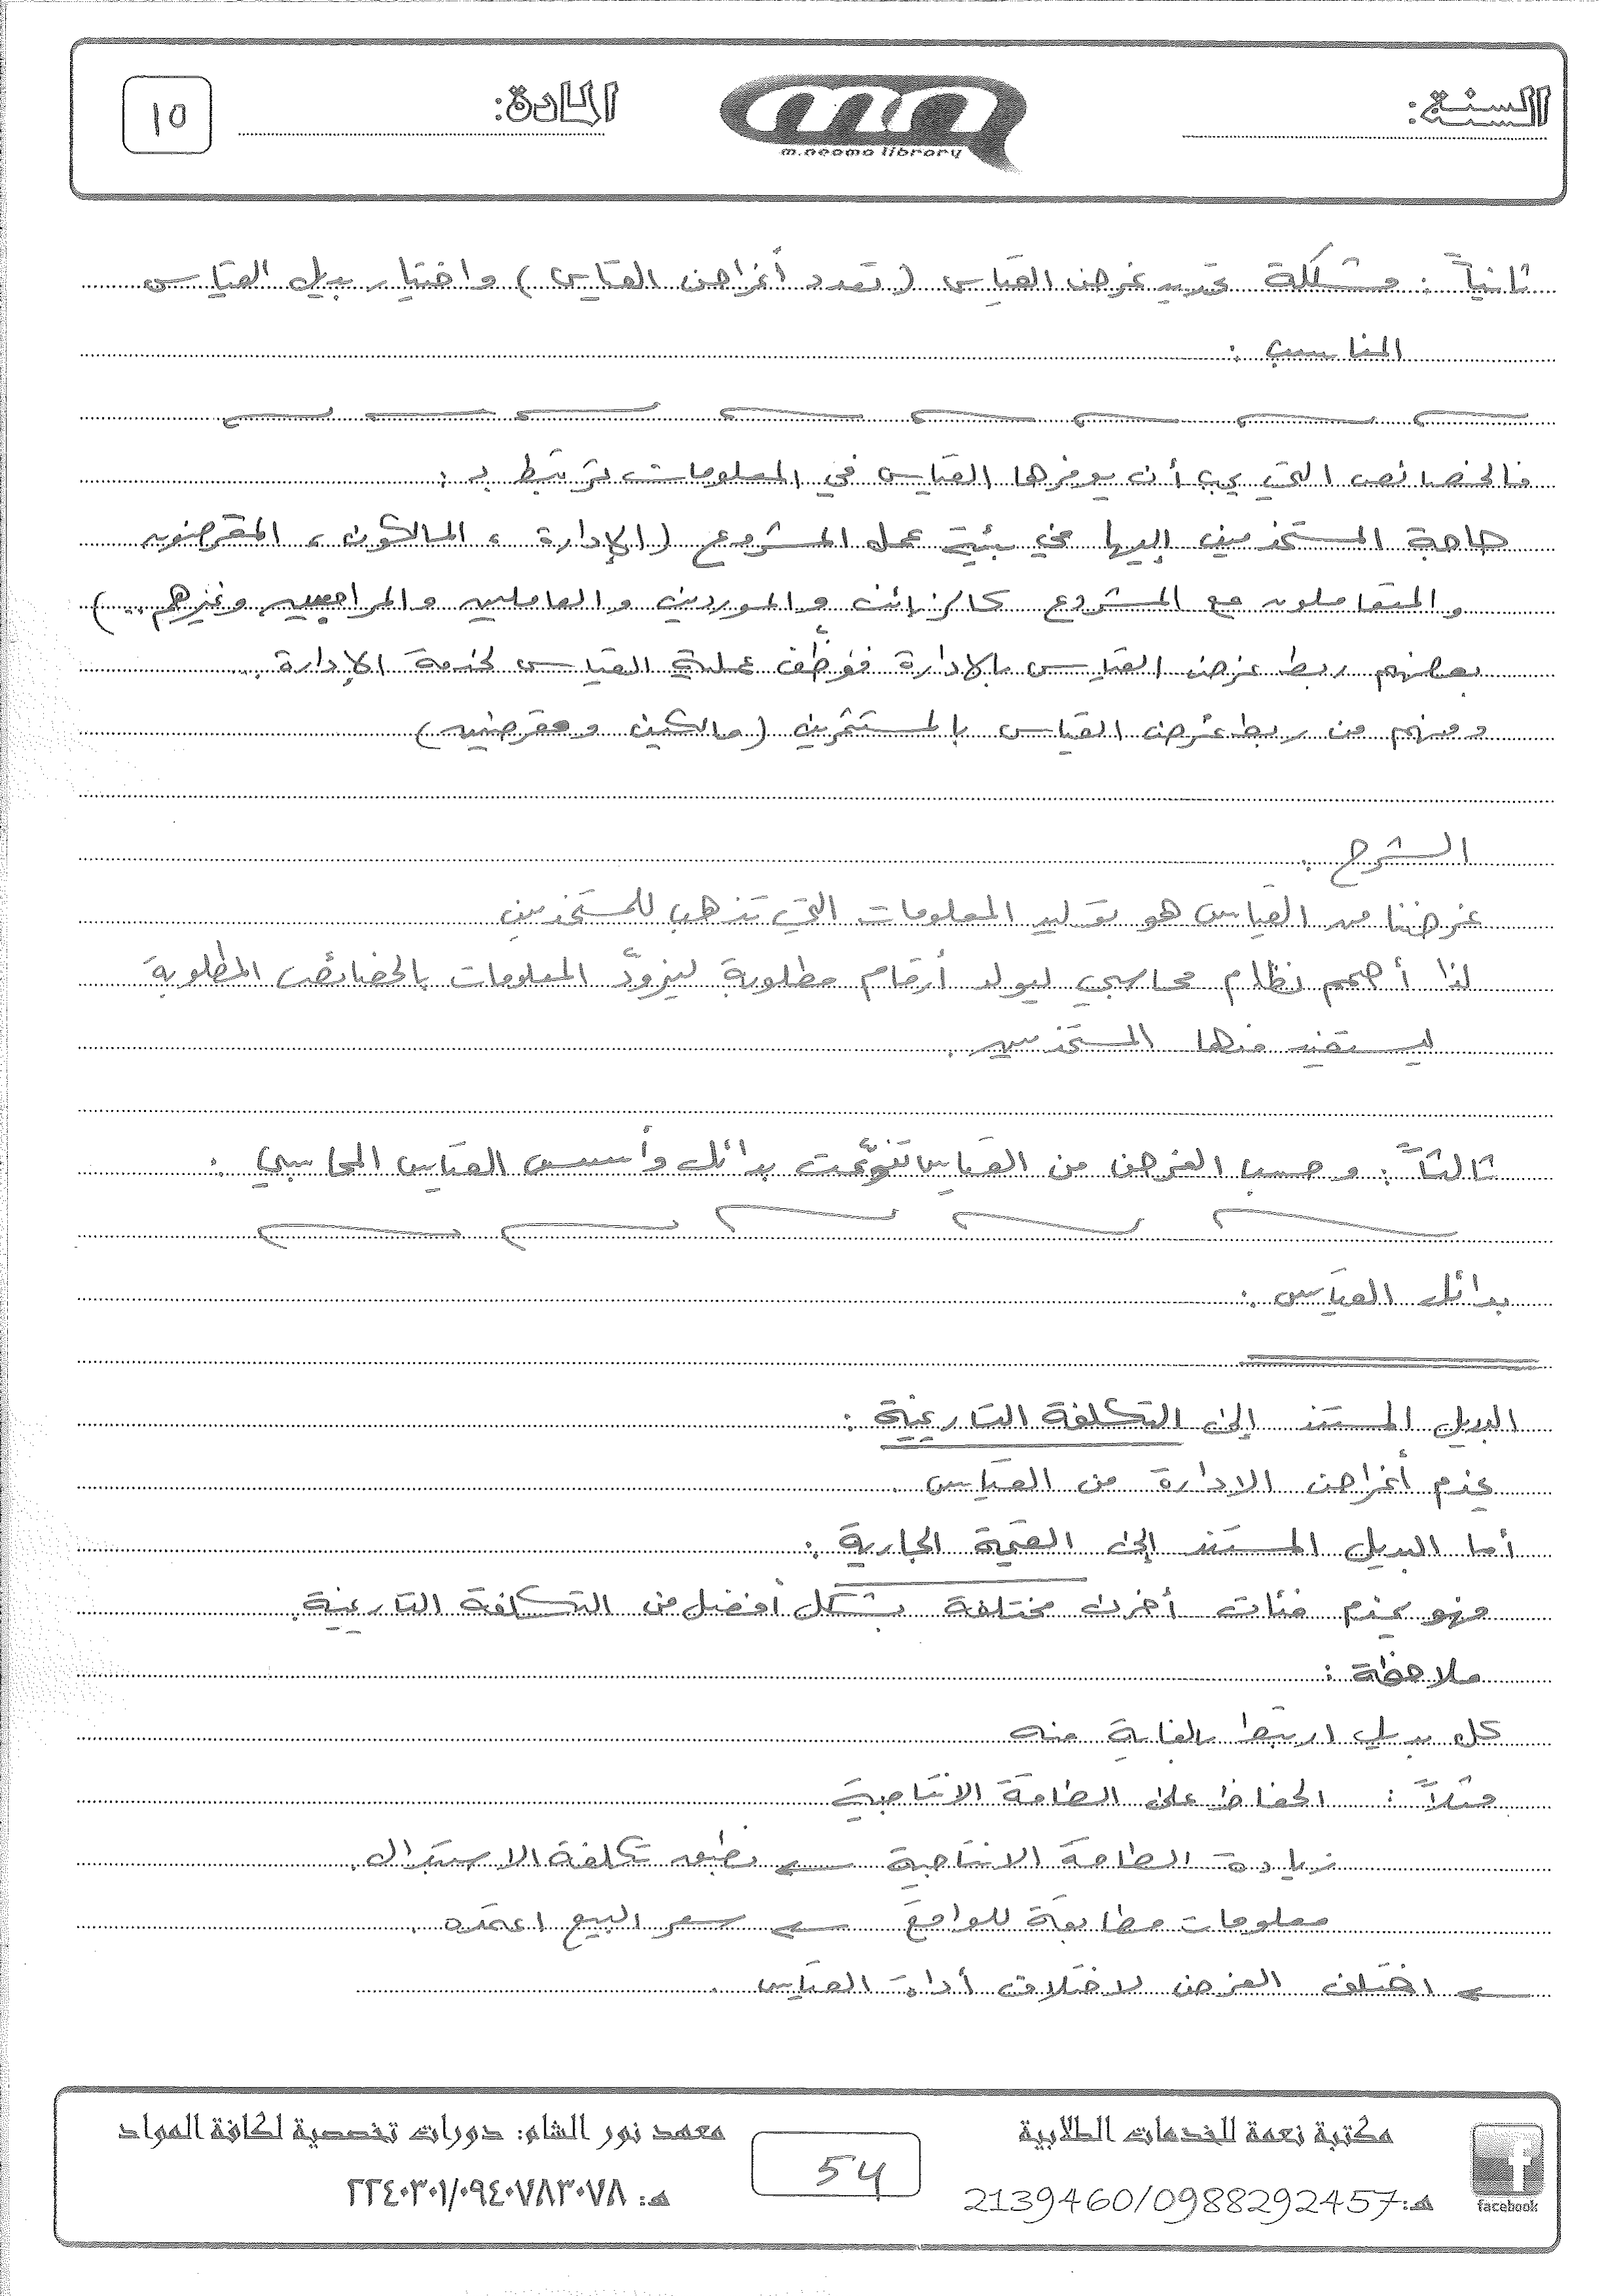 السنة:
m.neama library
المادة:
١٥
ثانياً : مشكلة تحديد غرض القياس (تعدد أغراض القياس) واختيار بديل القياس
المناسب :
فالخصائص التي يجب أن يوفرها القياس في المعلومات ترتبط بـ :
حاجة المستخدمين إليها في بيئة عمل المشروع (الإدارة ، المالكون ، المقرضون
والمتعاملون مع المشروع كالزبائن والموردين والعاملين والمراجعين وغيرهم ..)
بعضهم ربط غرض القياس بالإدارة فوُظِّف عملية القياس لخدمة الإدارة .
ومنهم من ربط غرض القياس بالمستثمرين (مالكين ومقرضين)
الشرح :
غرضنا من القياس هو توليد المعلومات التي تذهب للمستخدمين
لذا أصمم نظام محاسبي ليولد أرقام مطلوبة ليزودّ المعلومات بالخصائص المطلوبة
ليستفيد منها المستخدمين .
ثالثاً : وحسب الغرض من القياس تنوّعت بدائل وأسس القياس المحاسبي :
بدائل القياس :
البديل المستند إلى التكلفة التاريخية :
يخدم أغراض الادارة من القياس .
أما البديل المستند إلى القيمة الجارية :
فهو يخدم فئات أخرى مختلفة بشكل أفضل من التكلفة التاريخية .
ملاحظة :
كل بديل ارتبط بالغاية منه
مثلاً : الحفاظ على الطاقة الانتاجية
زيادة الطاقة الانتاجية ← نطبق تكلفة الاستبدال .
معلومات مطابقة للواقع ← سعر البيع اعتمده .
← اختلف الغرض لاختلاف أداة القياس .
facebook
مكتبة نعمة للخدمات الطلابية
هـ: 2139460/0988292457
54
معهد نور الشام: دورات تخصصية لكافة المواد
هـ: ٢٢٤٠٣٠١/٠٩٤٠٧٨٣٠٧٨